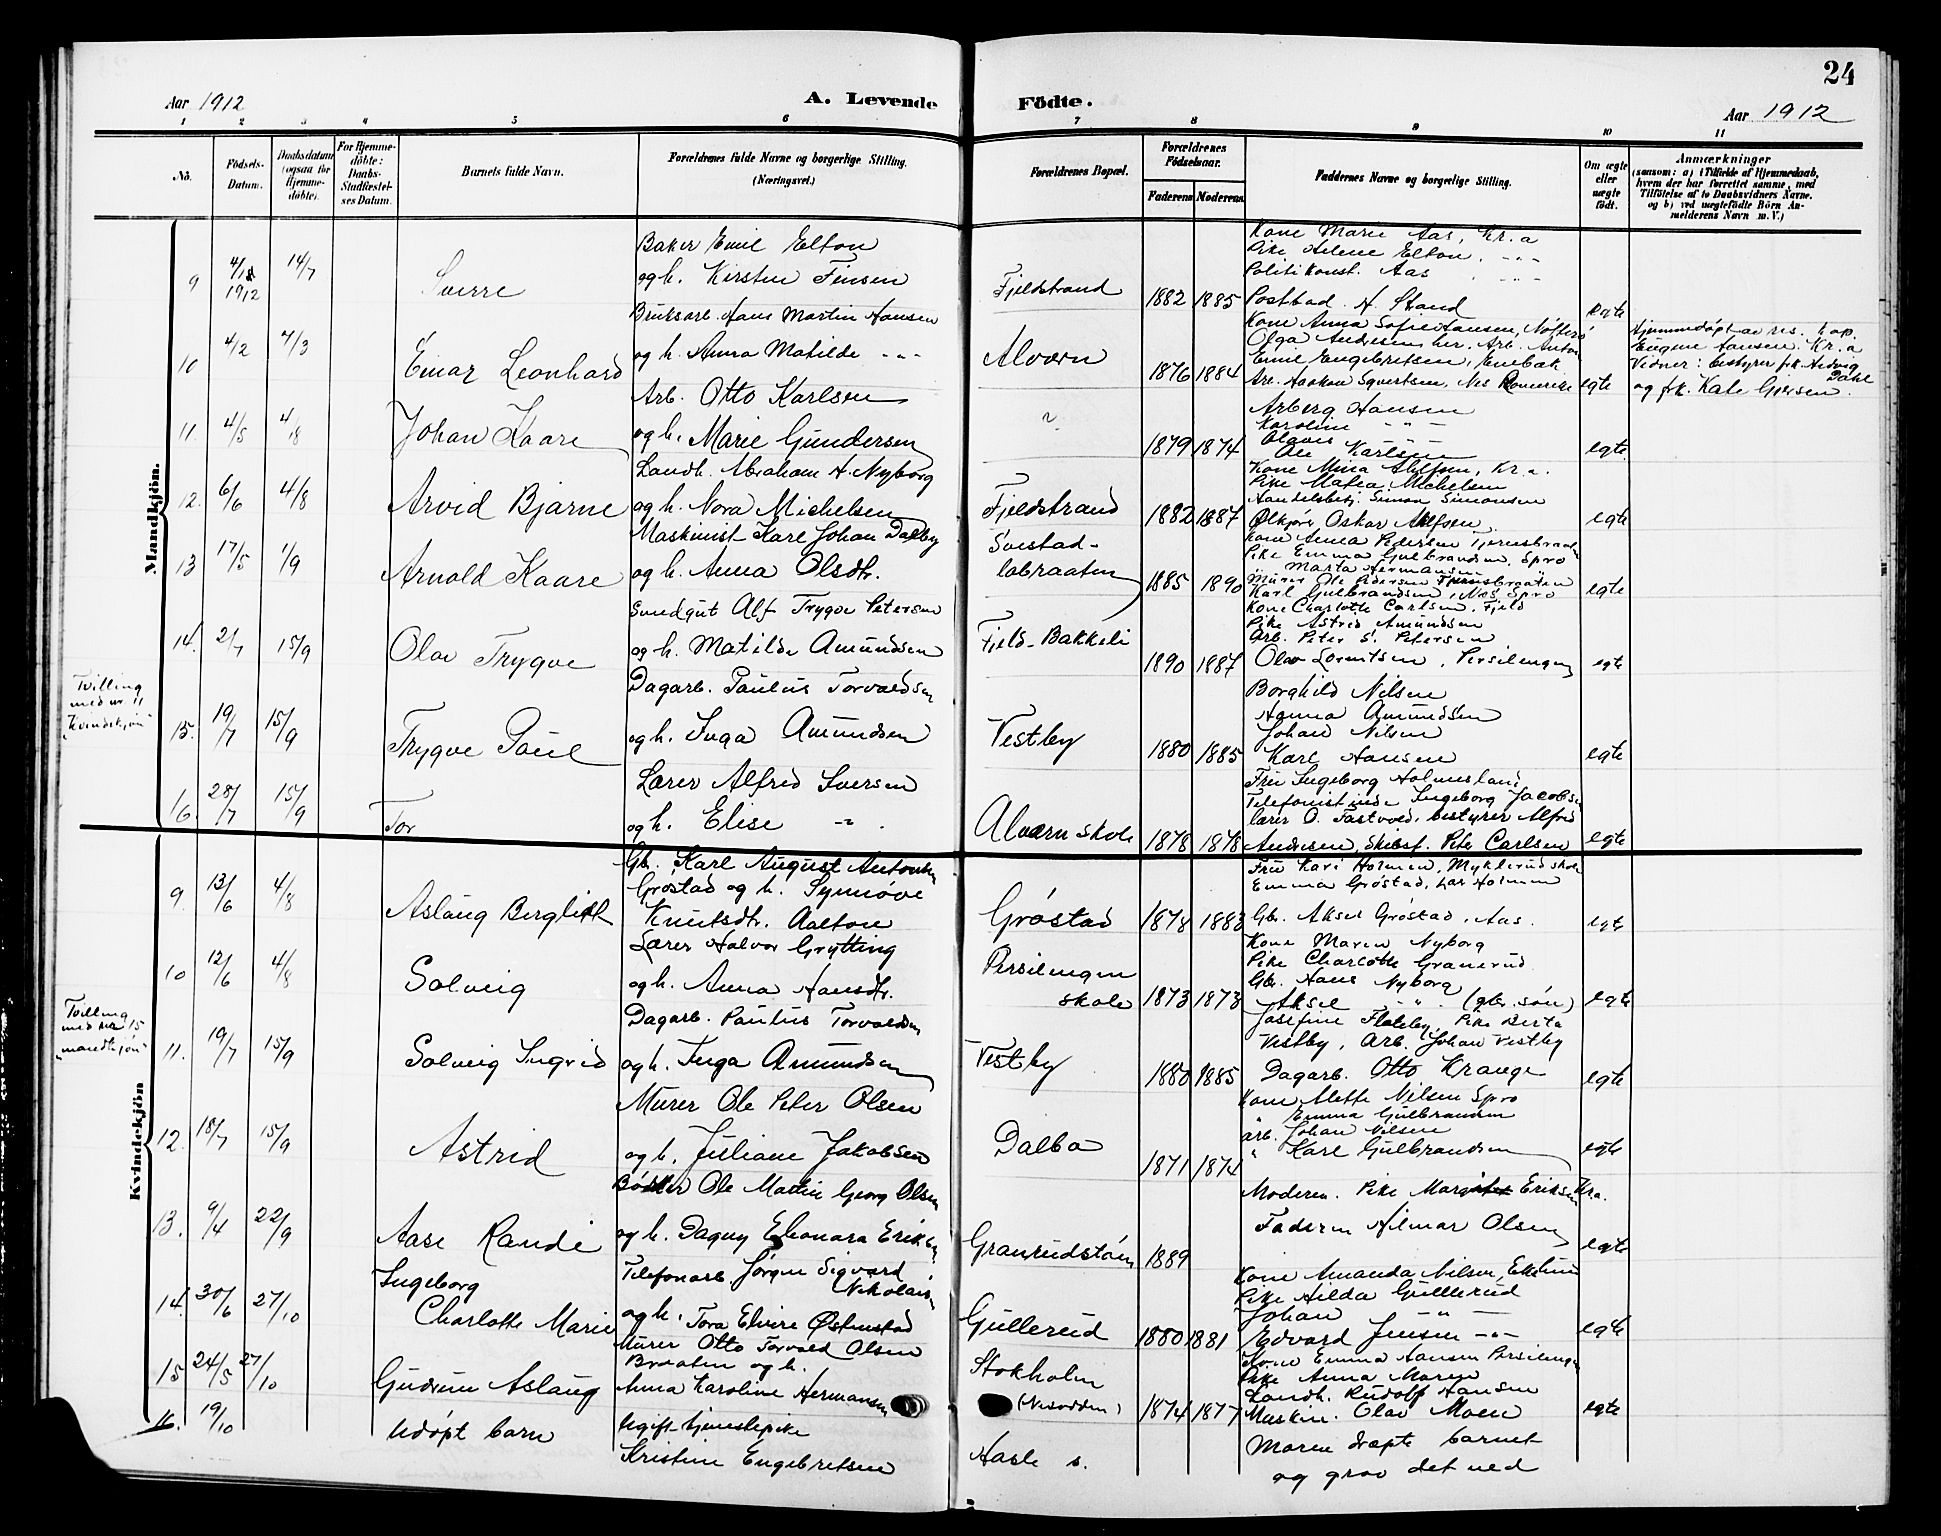 24
Aar 1912
A. Levende Födte.
Aar 1912
1 2 3 4 5 6 7 8 9 10 11
No.
Födsels-
Datum.
Daabsdatum
(ogsaa for
Hjemme-
döbte).
For Hjemme-
döbte:
Daabs-
Stadfæstel-
ses Datum.
Barnets fulde Navn.
Forældrenes fulde Navne og borgerlige Stilling.
(Næringsvei.)
Forældrenes Bopæl.
Forældrenes
Födselsaar.
Faderens Moderens
Faddernes Navne og borgerlige Stilling.
Om ægte
eller
uægte
födt.
Anmærkninger
(saasom: a) i Tilfælde af Hjemmedaab,
hvem der har forrettet samme, med
Tilföielse af to Daabsvidners Navne.
og b) ved uægtefödte Börn An-
melderens Navn m. V.)
Mandkjön.
9 4/1 1912 14/7
Sverre
Baker Emil Elton
og h. Kirsten Finsen
Fjeldstrand
1882 1885
Kone Marie Aas, Kr.a
Pike Helene Elton, -"-
Politikonst. Aas -"-
Postbud A. Strand
egte
10 4/2 7/3
Einar Leonhard
Bruksarb. Hans Martin Hansen
og h. Anna Matilde -"-
Alværn
1876 1884
Kone Anna Sofie Hansen, Nøtterø
Olga Andresen, her. Arb. Anton
Emil Engebretsen, Enebak
Arb. Haakon Syvertsen, Nes Romerike
egte
Hjemmedøpt av res. kap.
Eugene Hansen. Kr.a
Vidner: bestyrer frk. Hedvig
Dahl
og frk. Kate Iversen.
11. 4/5 4/8
Johan Kaare
Arb. Otto Karlsen
og h. Marie Gundersen
"
1879 1874
Arberg Hansen
Karoline -"-
Olaves -"-
Ole Karlsen
egte
12. 6/6 4/8
Arvid Bjarne
Landh. Abraham A. Nyborg
og h. Nora Michelsen
Fjeldstrand
1882 1887
Kone Mina Alfsen, Kr.a.
Pike Matea Michelsen
Handelsbetj. Simon Simonsen
Ølkjører Oskar Alfsen
egte
13 17/5 1/9
Arnold Kaare
Maskinist Karl Johan Dalby
og h. Anna Olsdtr.
Svestad-
labraaten
1885 1890
Kone Anna Pedersen Tjernsbraaten
Pike Emma Gulbrandsen, Spro
" Marta Hermansen
Murer Ole Pedersen Tjernsbraaten
Karl Gulbrandsen, Nes Spro
egte
14. 2/7 15/9
Olav Trygve
Sundgut Alf Trygve Petersen
og h. Matilde Amundsen
Fjeld-Bakkeli
1890 1887
Kone Charlotte Carlsen, Fjeld
Pike Astrid Amundsen
Arb. Peter S. Petersen
Olav Lorentsen, Persilengen
egte
Tvilling
med nr 11
"kvindekjøn"
15. 19/7 15/9
Trygve Paul
Dagarb. Paulus Torvaldsen
og h. Inga Amundsen
Vestby
1880 1885
Borghild Nilsen
Hanna Amundsen
Johan Nilsen
Karl Hansen
egte
16. 28/7 15/9
Tor
Lærer Alfred Iversen
og h. Elise -"-
Alværn skole
1878 1878
Fru Ingeborg Holmesland
Telefonistinde Ingeborg Jacobsen
lærer O. Tastvod, bestyrer Alfred
Andresen, Skibsf. Peter Carlsen
egte
Kvindekjön
9. 13/6 4/8
Aslaug Bergliot
Gb. Karl August Antonsen
Grøstad og h. Synnøve
Knutsdtr. Aalton
Grøstad
1878 1883
Fru Kari Holmen, Myklerud skole
Emma Grøstad, Lars Holmen
Gb. Aksel Grøstad, Aas.
egte
10 12/6 4/8
Solveig
Lærer Halvor Grytting
og h. Anna Hansdtr.
Persilengen
skole
1873 1873
Kone Maren Nyborg
Pike Charlotte Granerud
Gbr. Hans Nyborg
Aksel -"- (gbr. søn)
egte
Tvilling
med no 15
"mandkjøn"
11. 19/7 15/9
Solveig Ingrid
Dagarb. Paulus Torvaldsen
og h. Inga Amundsen
Vestby
1880 1885
Josefine Flateby, Pike Berta
Vestby, Arb. Johan Vestby
Dagarb. Otto Krange
egte
12. 18/7 15/9
Astrid
Murer Ole Peter Olsen
og h. Juliane Jakobsen
Dalbo
1871 1874
Kone Mette Nilsen Spro
" Emma Gulbrandsen
arb. Johan Nilsen
" Karl Gulbrandsen
egte
13. 9/4 22/9
Aase Randi
Bødker Ole Martin Georg Olsen
og h. Dagny Eleonora Eriksen
Granerudstøen
1889
Moderen. Pike Margit Eriksen Kra.
Faderen Hilmar Olsen
egte
14. 30/6 27/10
Ingeborg
Charlotte Marie
Telefonarb Jørgen Sigvard
Nikolaisen
og h. Tora Elvire Østenstad
Gullerud
1880 1881
Kone Amanda Nilsen,
Pike Hilda Gullerud
Johan -"-
Edvard Jensen -"-
egte
15 24/5 27/10
Gudrun Aslaug
Murer Otto Torvald Olsen
Braaten og h.
Anna Karoline Hermansen
Stokholm
(Nesodden)
1874 1877
Kone Emma Hansen Persilengen
Pike Anna Moren
Landh. Rudolf Hansen
Maskin. Olav Moen
egte
16. 19/10
Udøpt barn
Ugift tjenestepike
Kristine Engebretsen
Hasle s.
Moren dræpte barnet
og grov det ned